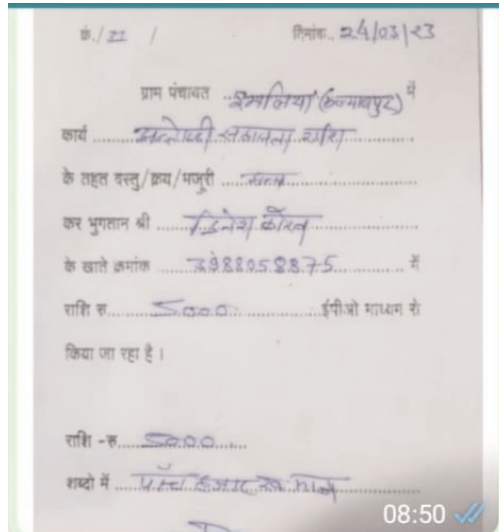 कं./22 /
दिनांक.. 24/03/23
ग्राम पंचायत ..इमलिया (कल्याणपुर) में
कार्य ....अन्त्येष्टी सहायता राशि................
के तहत वस्तु/क्रय/मजुरी ....................
कर भुगतान श्री .......दिनेश कोरी...................
के खाते क्रमांक .......3988058875............. में
राशि रु..........5000...................ईपीओ माध्यम से
किया जा रहा है।
राशि -रु......5000.......
शब्दो में .....पाँच हजार रू मात्र..................
08:50